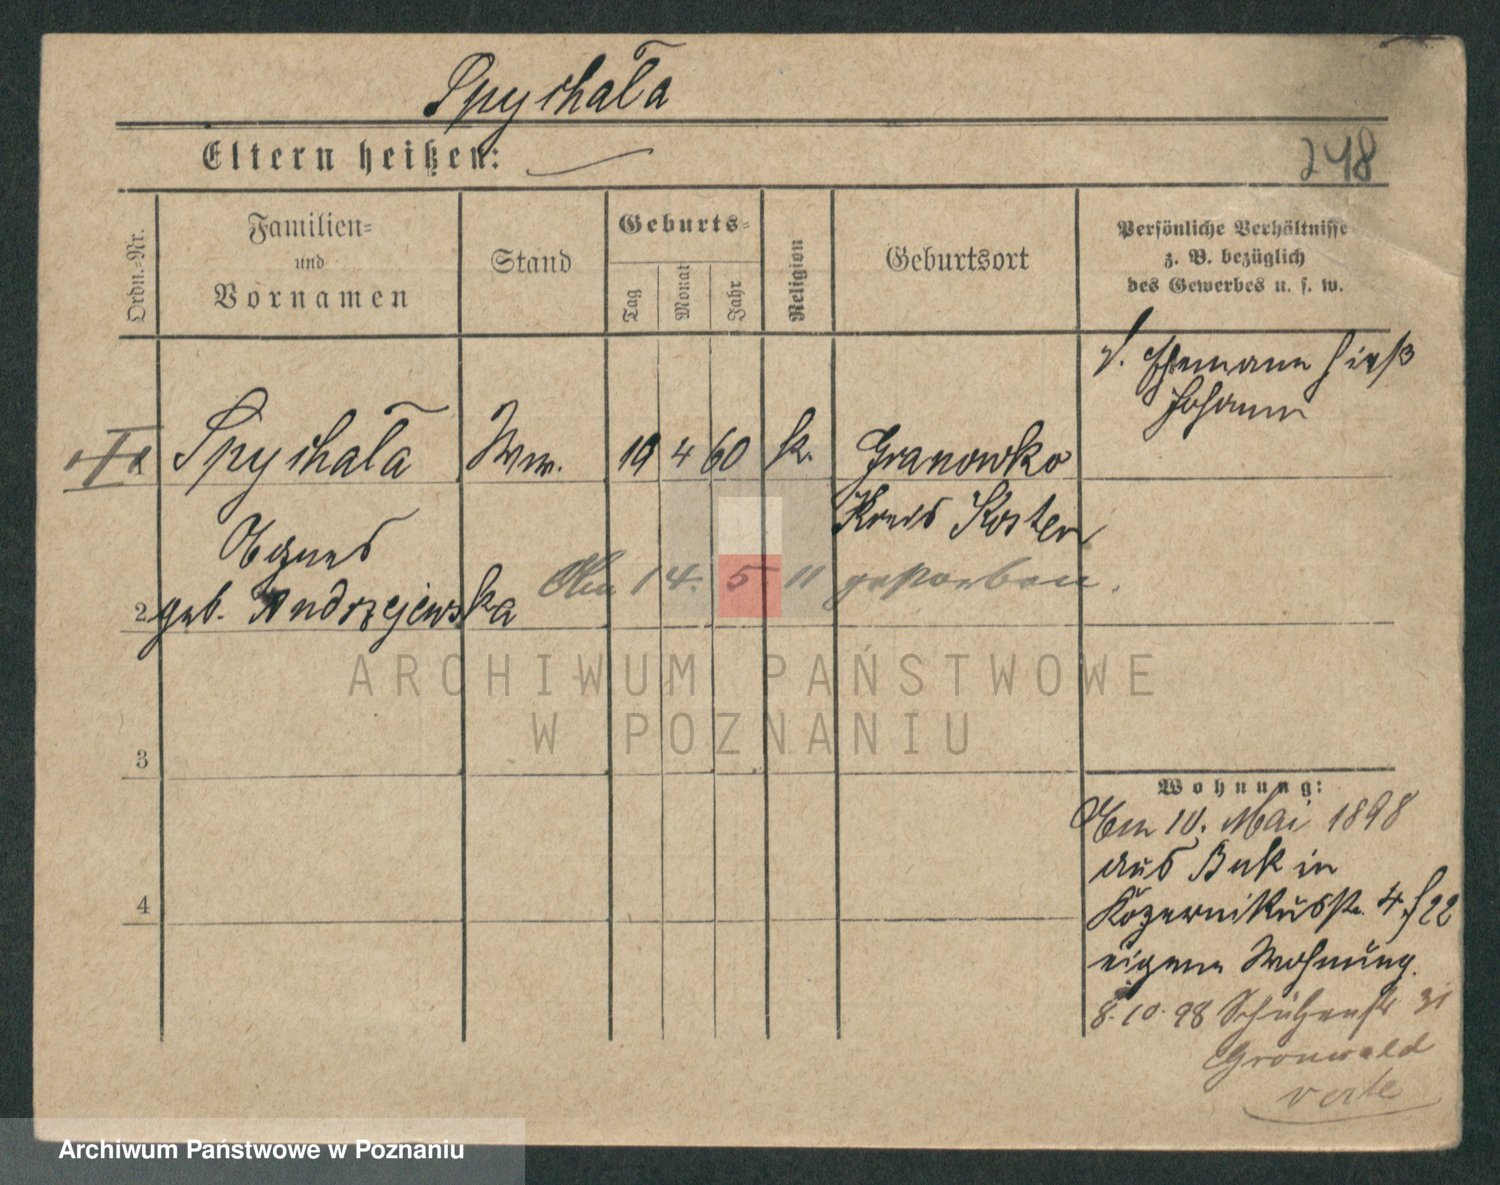 Spychała
Eltern heißen:
248
Ordn.-Nr.
Familien-
und
Vornamen
Stand
Geburts-
Tag
Monat
Jahr
Religion
Geburtsort
Persönliche Verhältnisse
z. B. bezüglich
des Gewerbes u. s. w.
d. Ehemann hieß
Johann
Spychała Ww. 19 4 60 k. Granowko
Agnes Kreis Kosten
2 geb. Andrzejewska
Am 14. 5. 11 gestorben.
ARCHIWUM PAŃSTWOWE
W POZNANIU
3
4
Wohnung:
Am 10. Mai 1898
aus Buk in
4
eigene Wohnung.
8.10.98 Schützenstr 31
Gronwald
verte
Archiwum Państwowe w Poznaniu